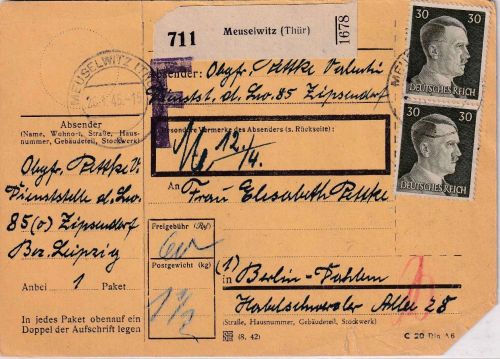 711 Meuselwitz (Thür) 1678
30 30
DEUTSCHES REICH
MEUSELWITZ
Absender: Obgfr. Pettke Valentin
Dienstst. d. Lw. 85 Zipsendorf
Besondere Vermerke des Absenders (s. Rückseite):
12./4.
An Frau Elisabeth Pettke
30 30
DEUTSCHES REICH
Absender
(Name, Wohnort, Straße, Haus-
nummer, Gebäudeteil, Stockwerk)
Obgfr. Pettke V.
Dienststelle d. Lw.
85 (o) Zipsendorf
Bez. Leipzig
Anbei 1 Paket
In jedes Paket obenauf ein
Doppel der Aufschrift legen
Freigebühr (Rpf)
60
Postgewicht (kg)
1 1/2
(1)
in Berlin-Dahlem
Habelschwerdter Allee 28
(Straße, Hausnummer, Gebäudeteil, Stockwerk)
(8. 42)
C 20 Din A6